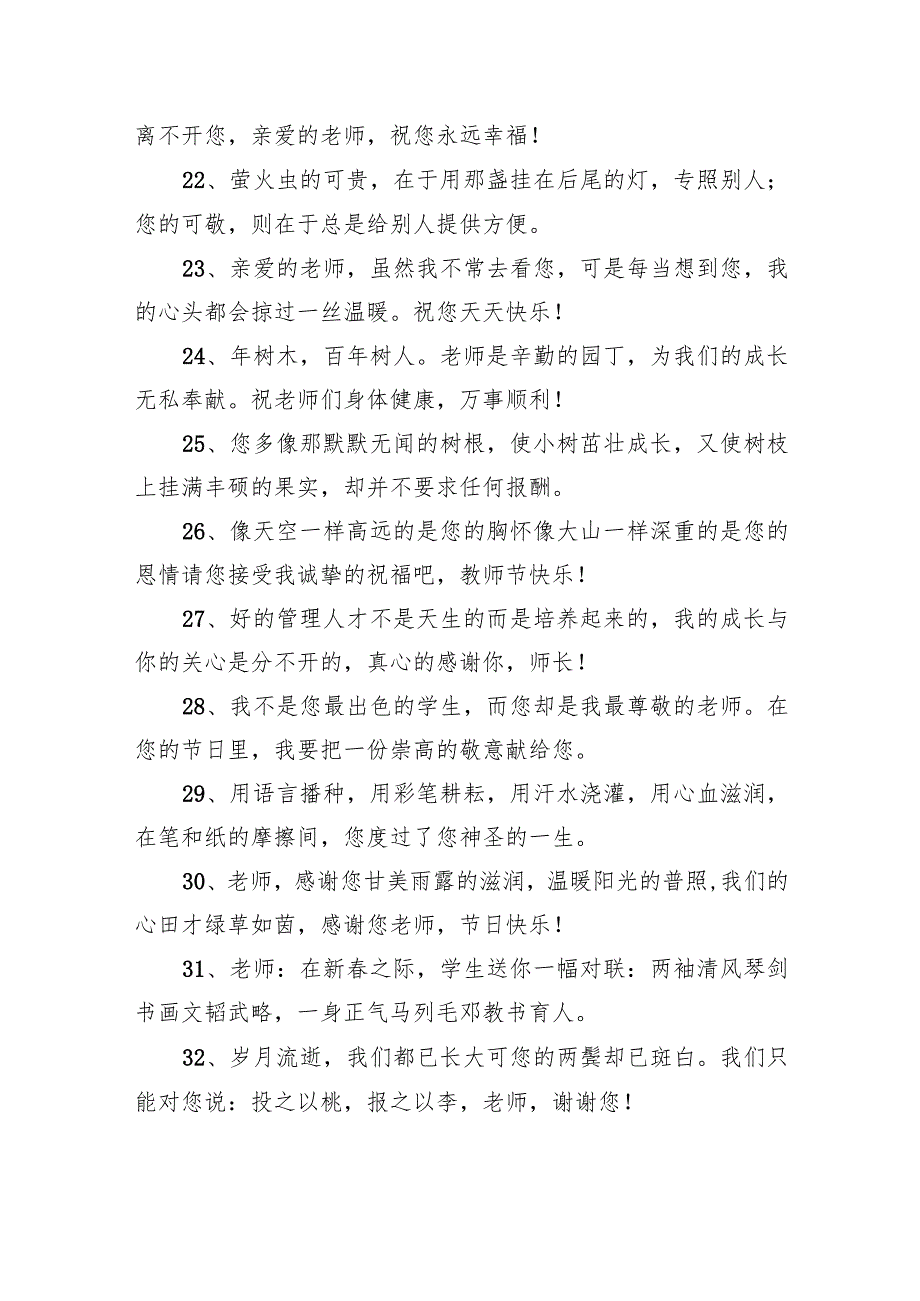 离不开您，亲爱的老师，祝您永远幸福！
22、萤火虫的可贵，在于用那盏挂在后尾的灯，专照别人；
您的可敬，则在于总是给别人提供方便。
23、亲爱的老师，虽然我不常去看您，可是每当想到您，我
的心头都会掠过一丝温暖。祝您天天快乐！
24、年树木，百年树人。老师是辛勤的园丁，为我们的成长
无私奉献。祝老师们身体健康，万事顺利！
25、您多像那默默无闻的树根，使小树茁壮成长，又使树枝
上挂满丰硕的果实，却并不要求任何报酬。
26、像天空一样高远的是您的胸怀像大山一样深重的是您的
恩情请您接受我诚挚的祝福吧，教师节快乐！
27、好的管理人才不是天生的而是培养起来的，我的成长与
你的关心是分不开的，真心的感谢你，师长！
28、我不是您最出色的学生，而您却是我最尊敬的老师。在
您的节日里，我要把一份崇高的敬意献给您。
29、用语言播种，用彩笔耕耘，用汗水浇灌，用心血滋润，
在笔和纸的摩擦间，您度过了您神圣的一生。
30、老师，感谢您甘美雨露的滋润，温暖阳光的普照,我们的
心田才绿草如茵，感谢您老师，节日快乐！
31、老师：在新春之际，学生送你一幅对联：两袖清风琴剑
书画文韬武略，一身正气马列毛邓教书育人。
32、岁月流逝，我们都已长大可您的两鬓却已斑白。我们只
能对您说：投之以桃，报之以李，老师，谢谢您！